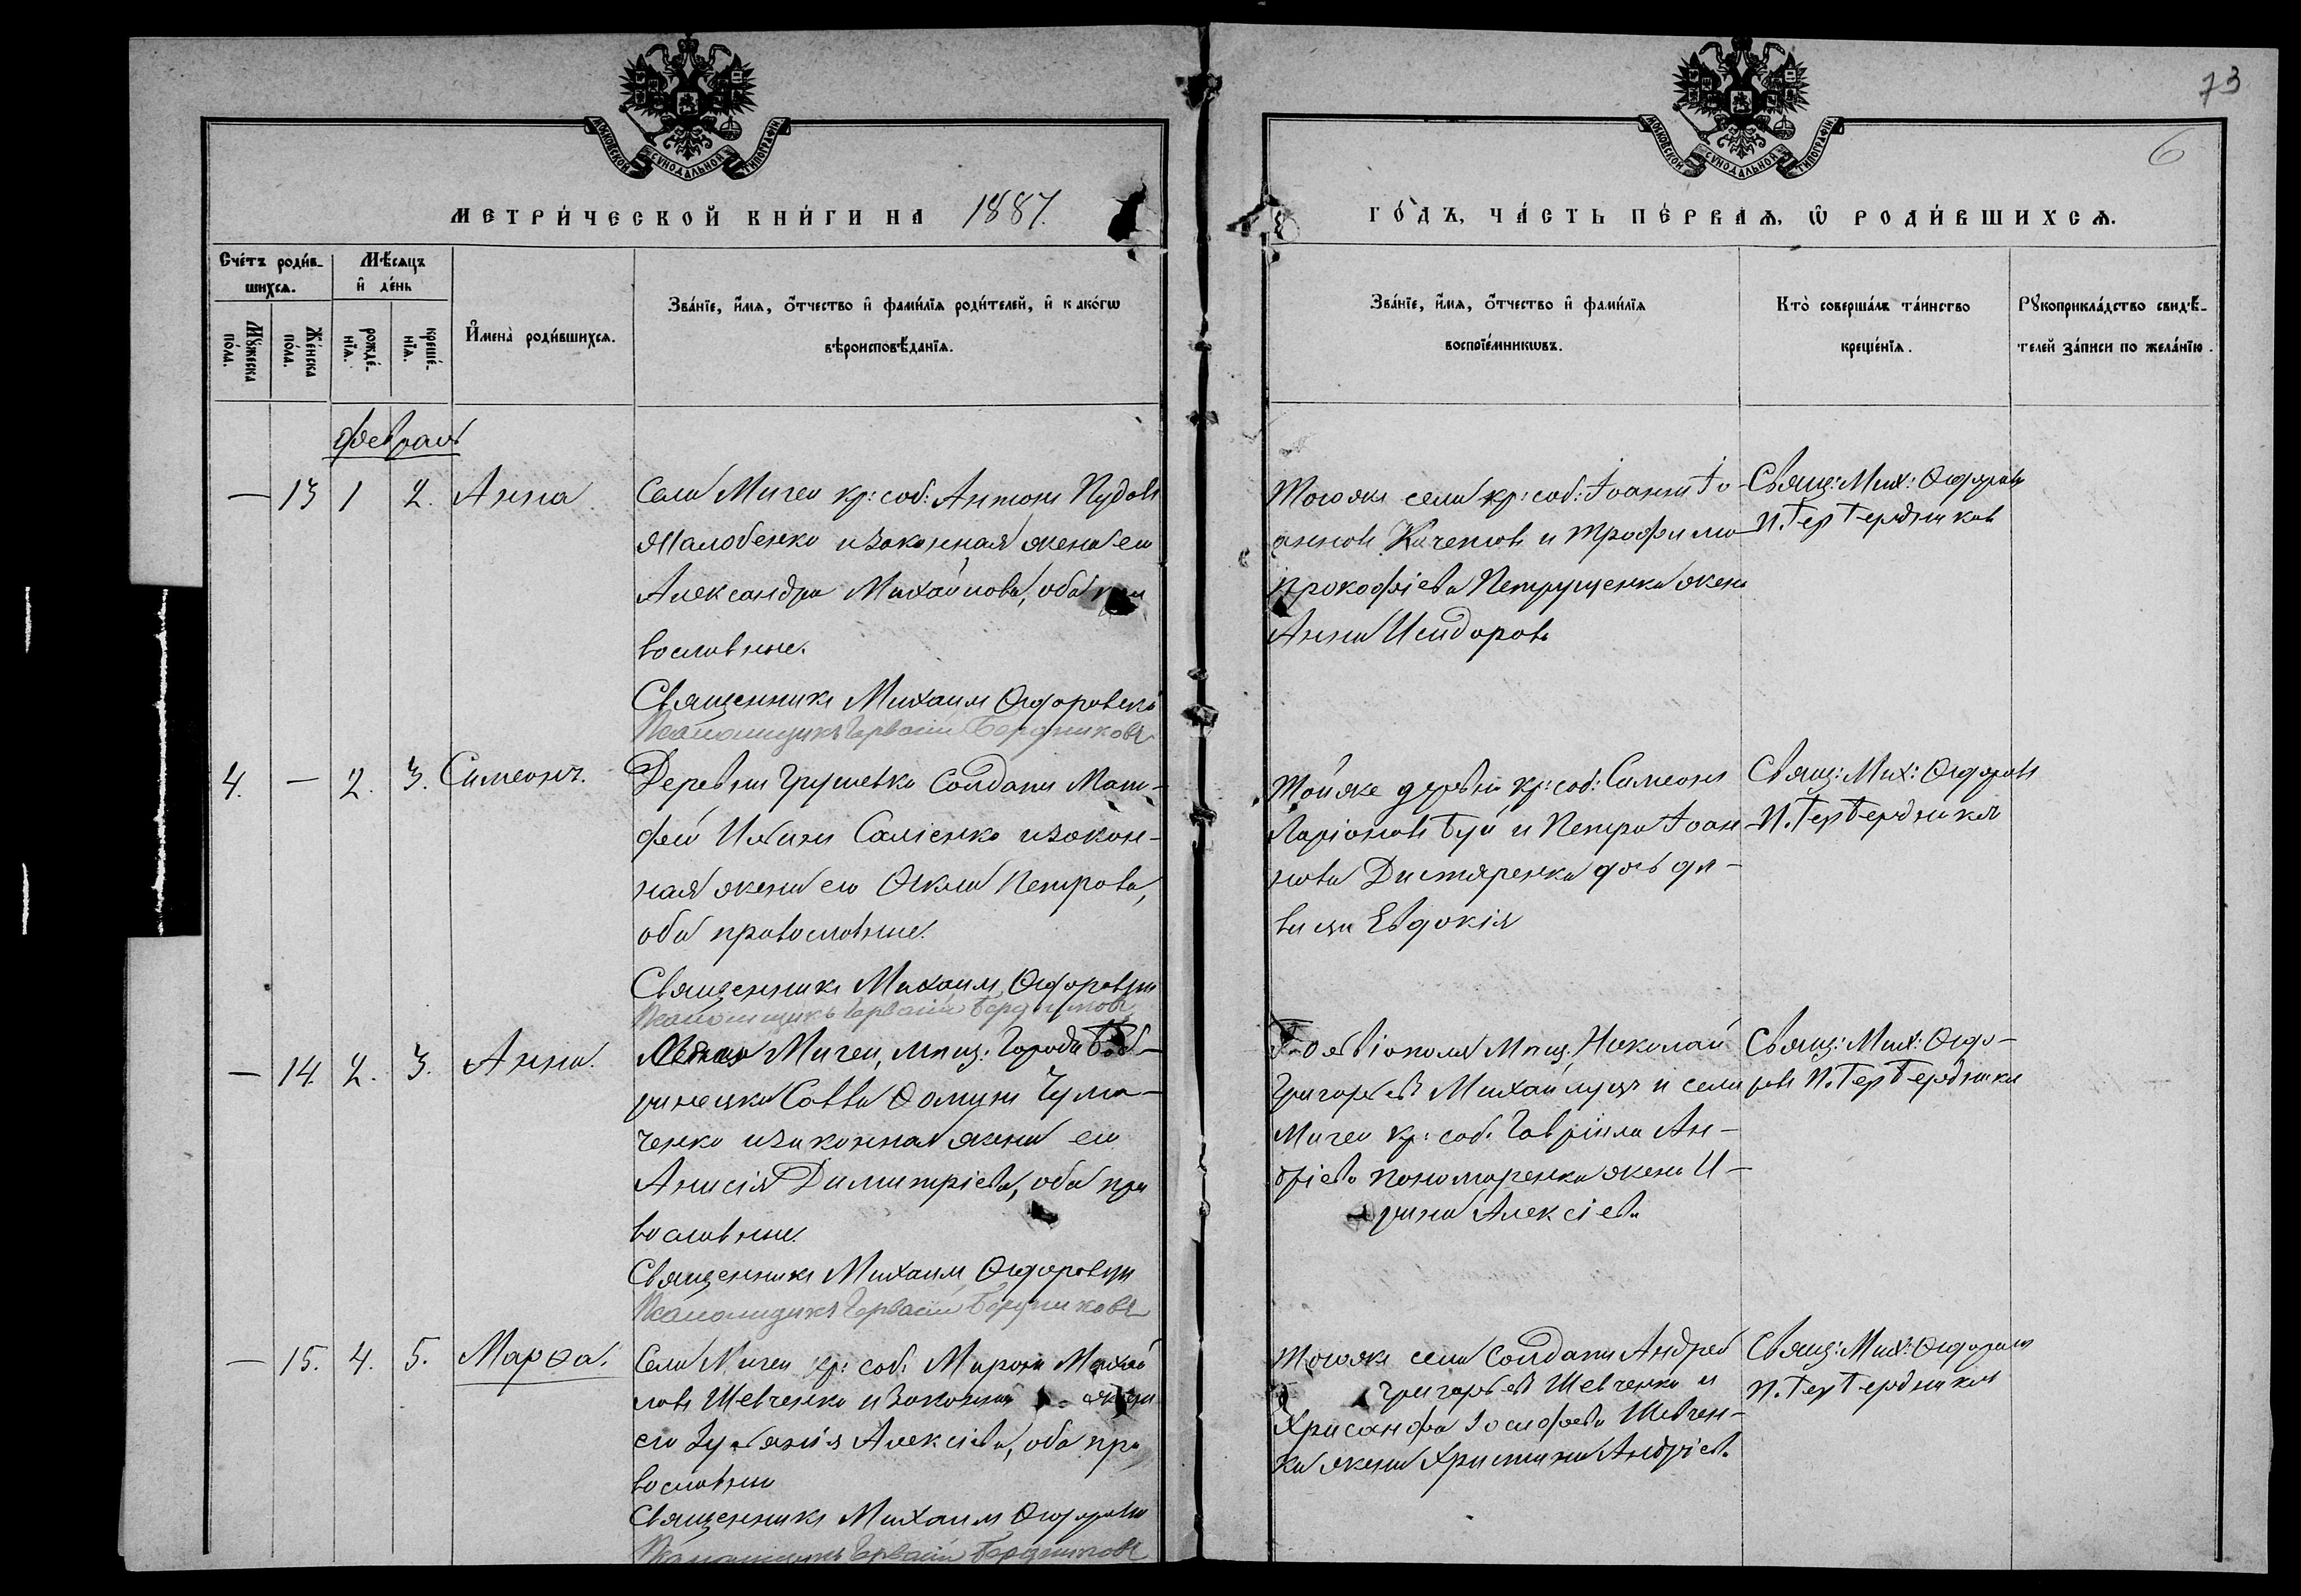 73
6
МОСКОВСКОЙ СУНОДАЛЬНОЙ ТИПОГРАФІИ
МОСКОВСКОЙ СУНОДАЛЬНОЙ ТИПОГРАФІИ
МЕТРИ́ЧЕСКОЙ КНИ́ГИ НА 1887.
ГО́ДЪ, ЧА́СТЬ ПЕ́РВАѦ, Ѡ РОДИ́ВШИХСѦ.
Сче́тъ роди́в-
шихсѧ.
Мꙋ́жеска по́ла.
Же́нска по́ла.
Мѣ́сѧцъ и҆ де́нь
рожде́-
нїѧ.
креще́-
нїѧ.
И҆мена̀ роди́вшихсѧ.
Зва́нїе, и҆́мѧ, ѻ҆́тчество и҆ фами́лїѧ роди́телей, и҆ како́гѡ
вѣроисповѣ́данїѧ.
Зва́нїе, и҆́мѧ, ѻ҆́тчество и҆ фами́лїѧ
воспрїе́мникѡвъ.
Кто̀ соверша́лъ та́инство
креще́нїѧ.
Рꙋкоприкла́дство свидѣ́-
телей за́писи по жела́нїю.
февраль
— 13 1 2. Анна
Села Мигеи кр: соб: Антонъ Пудовъ
Малобенко и законная жена его
Александра Михайлова, оба пра
вославные.
Священникъ Михаилъ Ѳедоровскій
Псаломщикъ Гервасій Бердниковъ
Тогоже села кр: соб: Іоаннъ Іо-
анновъ и Трофима
Прокофіева Петрущенка жена
Анна Исидорова
Свящ: Мих: Ѳедоровъ
П. Гер Бердниковъ
4. — 2. 3. Симеонъ.
Деревни Грушевки Солдатъ Мат-
фей Саліенко и закон-
ная жена его Ѳекла Петрова,
оба православные.
Священникъ Михаилъ Ѳедоровскій
Псаломщикъ Гервасій Бердниковъ
Тойже деревни кр: соб: Симеонъ
Ларіоновъ Буй и Петра Іоан
нова Дистяренка дочь дѣ-
вица Евдокія
Свящ: Мих: Ѳедоровъ
П. Гер Бердниковъ
— 14. 2. 3. Анна.
Мигеи, мѣщ: Города Боб-
ринецка Савва Ѳоминъ Чума-
ченко и законная жена его
Анисія Димитріева, оба пра
вославные.
Священникъ Михаилъ Ѳедоровскій
Псаломщикъ Гервасій Бердниковъ
мѣщ. Николай
Григорьевъ и села
Мигеи кр: соб: Гавріила Ан-
дріева Пономаренка жена И-
рина Алексіева
Свящ: Мих: Ѳедо-
ровъ П. Гер Бердниковъ
— 15. 4. 5. Марѳа.
Села Мигеи кр: соб: Миронъ Михай
ловъ Шевченко и законная жена
его Алексіева, оба пра
вославные
Священникъ Михаилъ Ѳедоровскій
Псаломщикъ Гервасій Бердниковъ
Тогоже села Солдатъ Андрей
Григорьевъ Шевченко и
Хрисанфа Іосифова Шевчен-
ка жена Христина Андріева
Свящ: Мих: Ѳедоровъ
П. Гер Бердниковъ